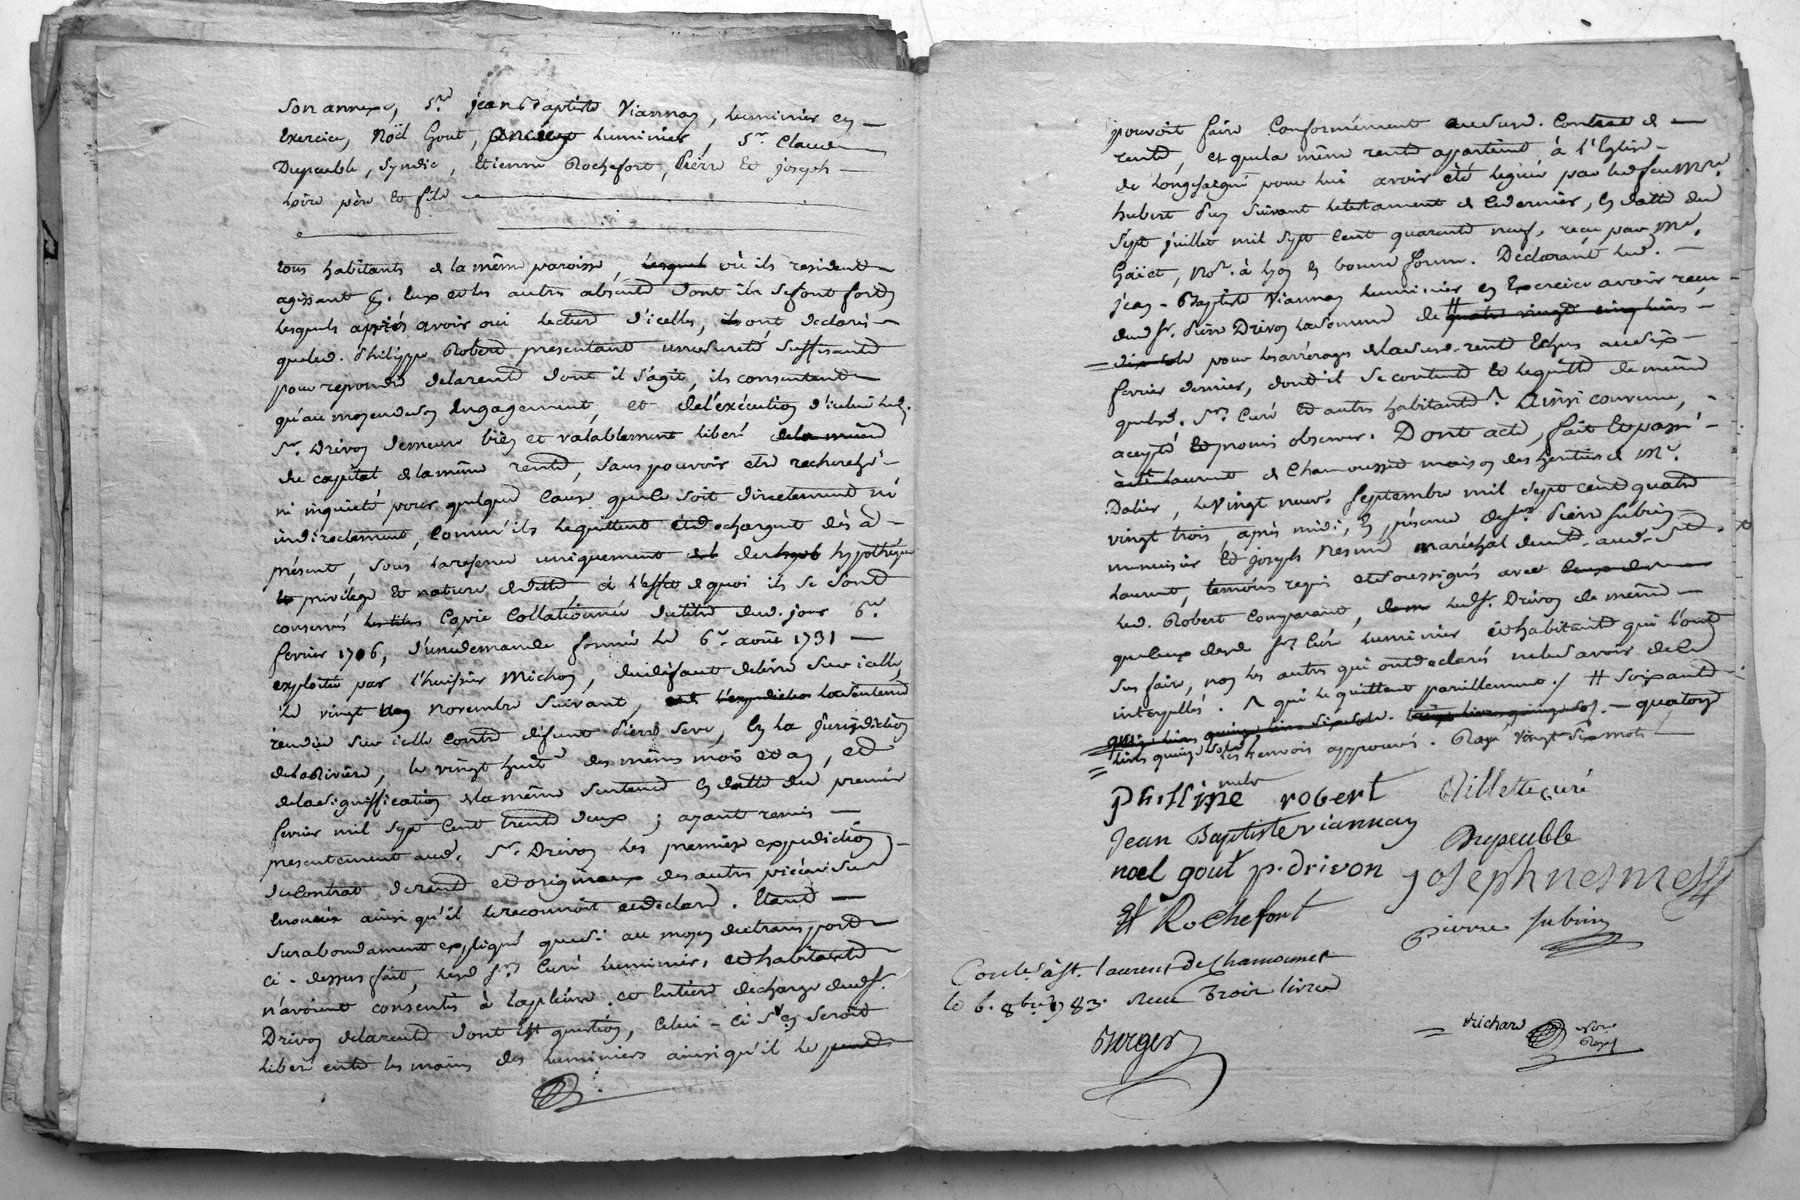 Son annexe, Sr. jean Baptiste Viannay, Luminier en
Exercice, Noël Gout, ancien Luminier, Sr. Claude
Dupeuble, Syndic, Etienne Rochefort, Pierre et joseph
Loire père et fils
tous habitants de la même paroisse, lesquels où ils resident
agissant pr. Eux et les autres absents dont ils se font forts
lesquels après avoir oui lecture d'icelles, ils ont declarés
que led. Philippe Robert presentant une sureté suffisante
pour repondre de la rente dont il s'agit, ils consentent
qu'au moyen de son Engagement, et de l'exécution d'icelui led.
Sr. Drivon demeure bien et valablement liberé de la même
du capital de la même rente, sans pouvoir etre recherché
ni inquieté pour quelque cause que ce soit directement ni
indirectement, comm'ils le quittent et dechargent dès à
présent, sous la reserve uniquement des hypothèques
et privilege et nature de dette à l'effet de quoi ils se sont
conservés les titres Copie Collationnée du titre dud. jour 6e.
fevrier 1706, d'une demande formée le 6e. août 1731
exploitée par l'huissier Michon, du défaut delivré sur icelle
le vingt novembre suivant, et l'expedition la Sentence
rendue sur icelle contre défunt Pierre Seve, en la Jurisdiction
de la Rivière, le vingt huite. des mêmes mois et an, et
de la signiffication de la même Sentence en datte du premier
fevrier mil sept cent trente deux; ayant remis
presentement aud. Sr. Drivon les premiere expedition
du contrat de rente et originaux des autres pieces sus
Enoncés ainsi qu'il le reconnoit et declare. Etant
surabondament expliqué que si au moyen du transport
ci-dessus fait, lesd. Srs. Curé Luminier, et habitants
n'avoient consentis à la pleine et entiere decharge dud. Sr.
Drivon de la rente dont Est question, Celui-ci s'en seroit
liberé entre les mains des Luminiers ainsi qu'il le
pouvoit faire Conformément audsusd. Contrat de
rente, et que la même rente appartient à l'Eglise
de Longessaigne pour lui avoir été leguée par led. feu Mre.
hubert Piey suivant le testament de ce dernier, en datte du
sept juillet mil sept cent quarante neuf, reçu par Me.
Gaiet, Nore. à Lyon en bonne forme. Déclarant led.
jean-Baptiste Viannay Luminier en Exercice avoir reçu
dud. Sr. Pierre Drivon la somme de # quatre vingt cinq livres
dix sols pour les arrérages de la susd. rente Echus au six
fevrier dernier, dont il se contente et le quitte de même
que lesd. Srs. Curé et autres habitants ^ Ainsi convenu,
accepté et promis observer. Dont acte, fait et passé
à St. Laurent de Chamousset maison des heritiers de Me.
Dalier, le vingt neuf. Septembre mil sept cent quatre
vingt trois, après midi, En présence de Srs. Pierre Subrin
menuisier et joseph Nesme maréchal demt. aud. St.
Laurent, temoins requis et soussignés avec
led. Robert Comparant, led. Sr. Drivon de même
que ceux desd. Srs. Curé luminier et habitants qui l'ont
sus faire, non les autres qui ont declarés ne le savoir de ce
interpellés. ^ qui le quittent pareillement ./. # soixante
quinze livres quinze sols six deniers. treize livres quinze sols. — quatorze
livres quinze sols les renvois approuvés. Rayé vingt six mots
Philippe robert Villette curé
Jean Baptiste viannay Dupeuble
noel gout p. drivon joseph nesme
Et Rochefort pierre subrin
Conle. à St. laurent de Chamousset
le 6. 8bre 1783. reçu Trois livres
Berger
Richard Nore. Royal